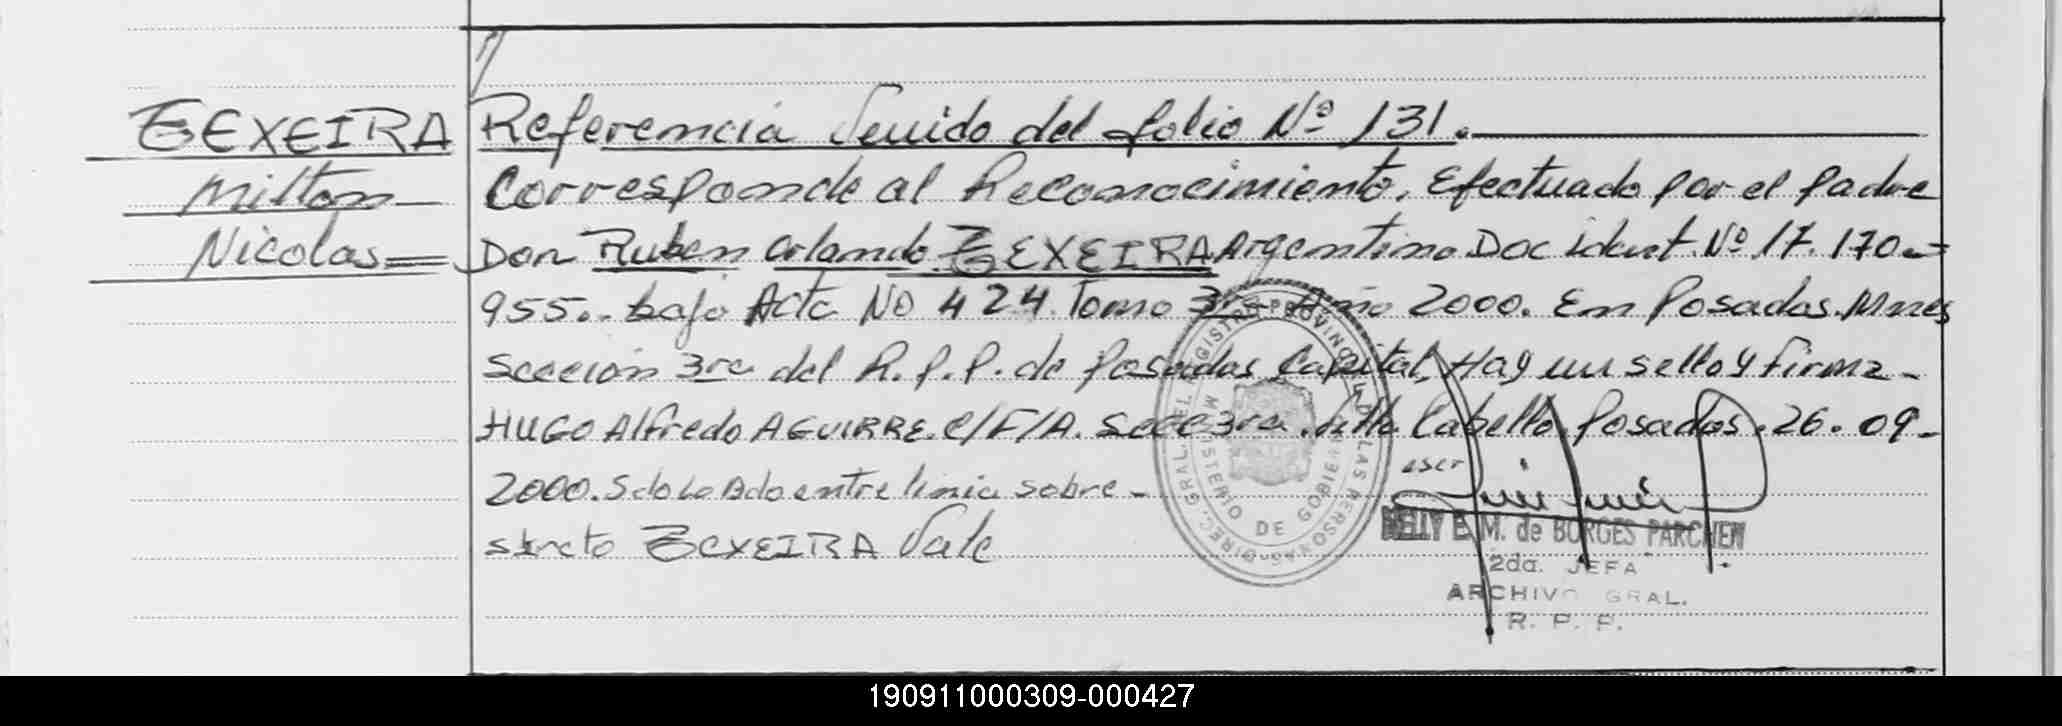 TEXEIRA
Milton
Nicolas
Referencia Venido del folio Nº 131.
Corresponde al Reconocimiento. Efectuado por el padre
Don Ruben Orlando TEXEIRA Argentino Doc ident. Nº 17.170-
955.. bajo Acta No 424. Tomo 3ro Año 2000. En Posadas. Mnes
Sección 3ra del R.P.P. de Posadas Capital, Hay un sello y firma-
HUGO Alfredo AGUIRRE. C/F/A. Secc 3ra. Villa Cabello Posadas. 26.09-
2000. entre linia sobre-
TEXEIRA Vale
DIREC. GRAL. DEL REGISTRO PROVINCIAL DE LAS PERSONAS
MINISTERIO DE GOBIERNO
NELLY E. M. de BORGES PARCHEN
2da. JEFA
ARCHIVO GRAL.
R. P. P.
190911000309-000427